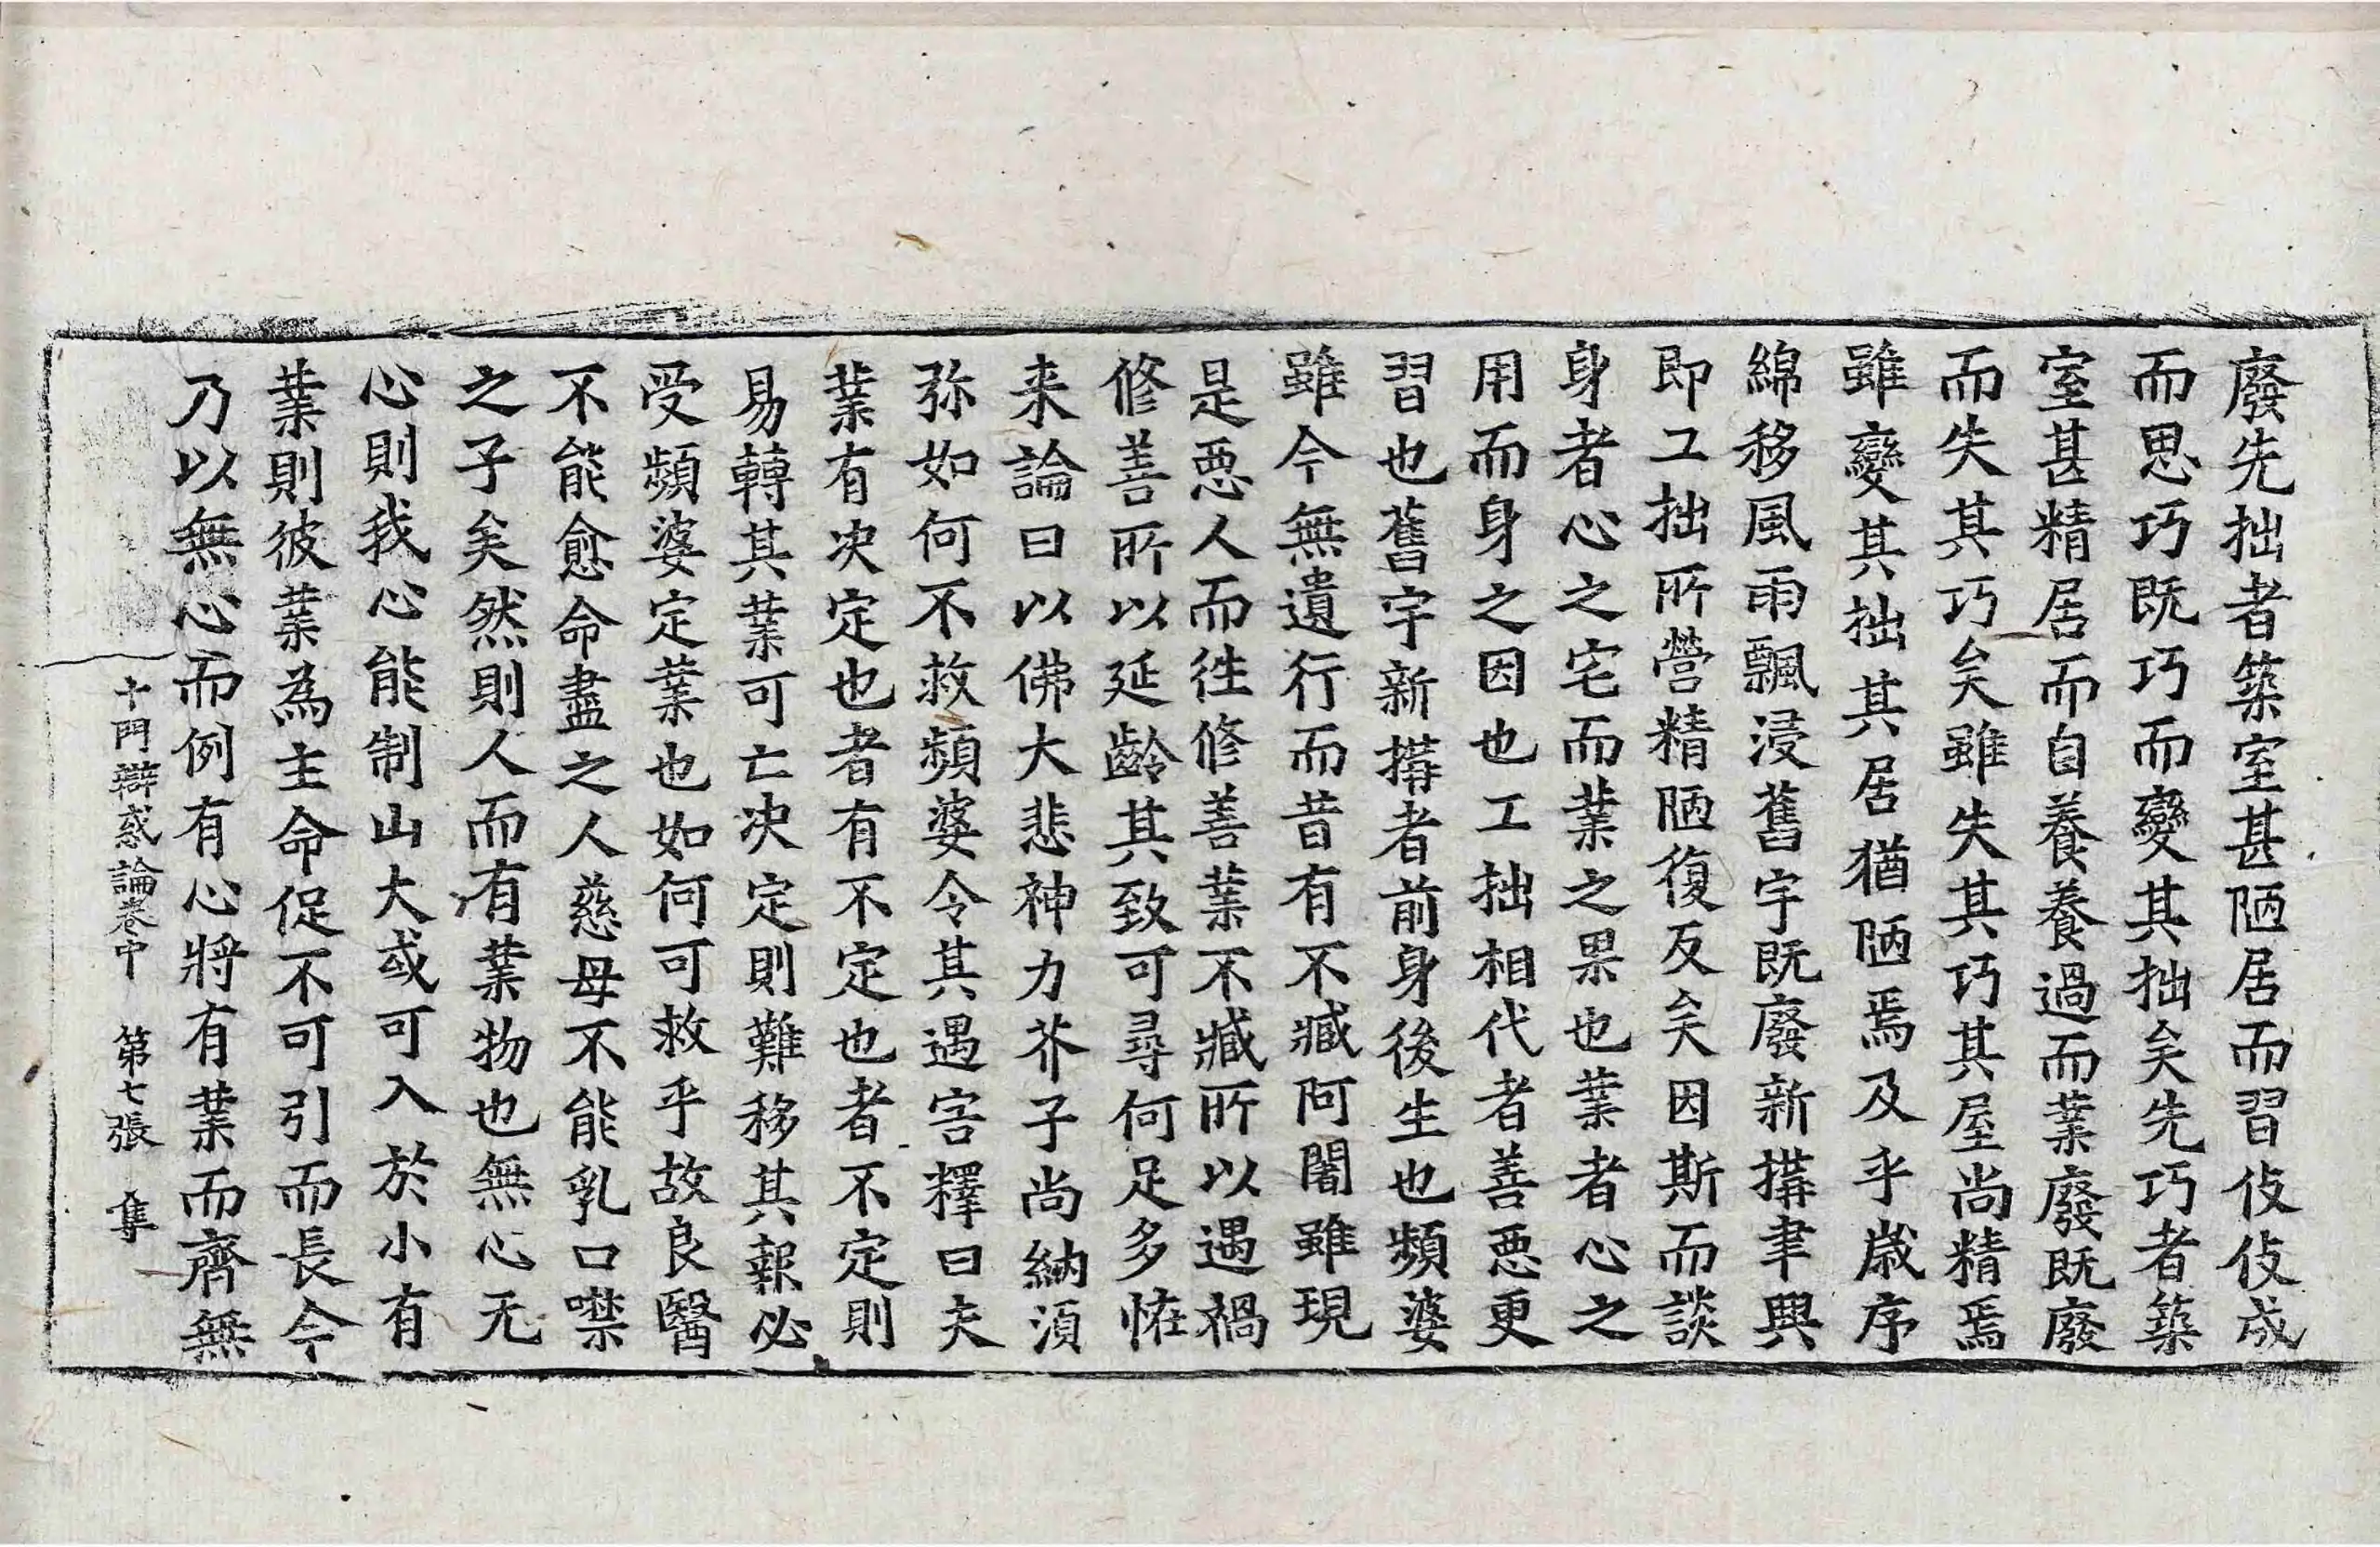 廢先拙者築室甚陋居而習伎伎成
而思巧既巧而變其拙矣先巧者築
室甚精居而自養養過而業廢既廢
而失其巧矣雖失其巧其屋尚精焉
雖變其拙其居猶陋焉及乎歲序
綿移風雨飄浸舊宇既廢新搆聿興
即工拙所營精陋復反矣因斯而談
身者心之宅而業之果也業者心之
用而身之因也工拙相代者善惡更
習也舊宇新搆者前身後生也頻婆
雖今無遺行而昔有不臧阿闍雖現
是惡人而徃修善業不臧所以遇禍
修善所以延齡其致可尋何足多恠
来論曰以佛大悲神力芥子尚納湏
弥如何不救頻婆令其遇害釋曰夫
業有决定也者有不定也者不定則
易轉其業可亡决定則難移其報必
受頻婆定業也如何可救乎故良醫
不能愈命盡之人慈母不能乳口噤
之子矣然則人而有業物也無心无
心則我心能制山大或可入於小有
業則彼業為主命促不可引而長今
乃以無心而例有心將有業而齊無
十門辯惑論卷中 第七張 隻